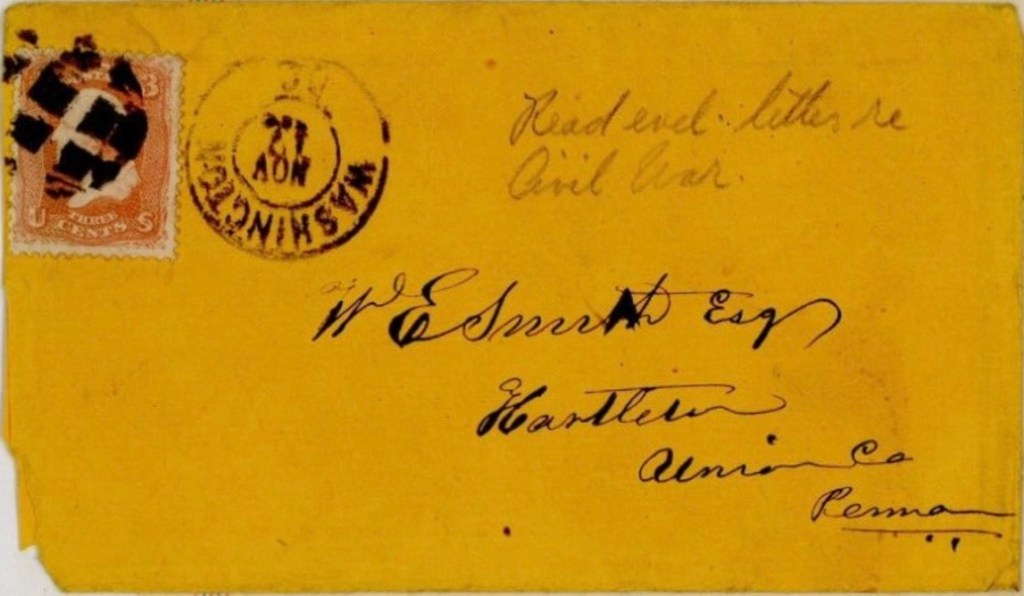 3
U S
THREE
CENTS
WASHINGTON
DC
NOV
Read encl. letter re
Civil War.
W E Smith Esq
Hartleton
Union Co
Penna